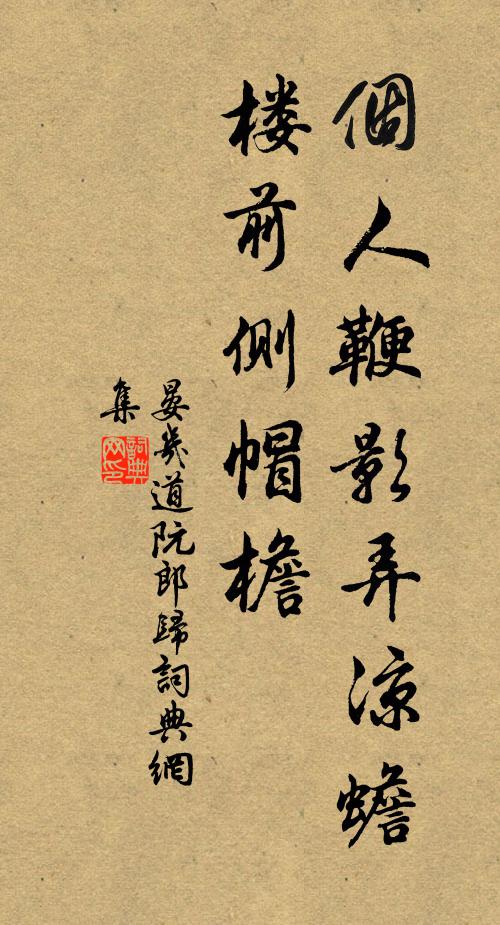 個人鞭影弄涼蟾
楼前側帽檐
晏幾道阮郎歸詞典網
集
詞典网印